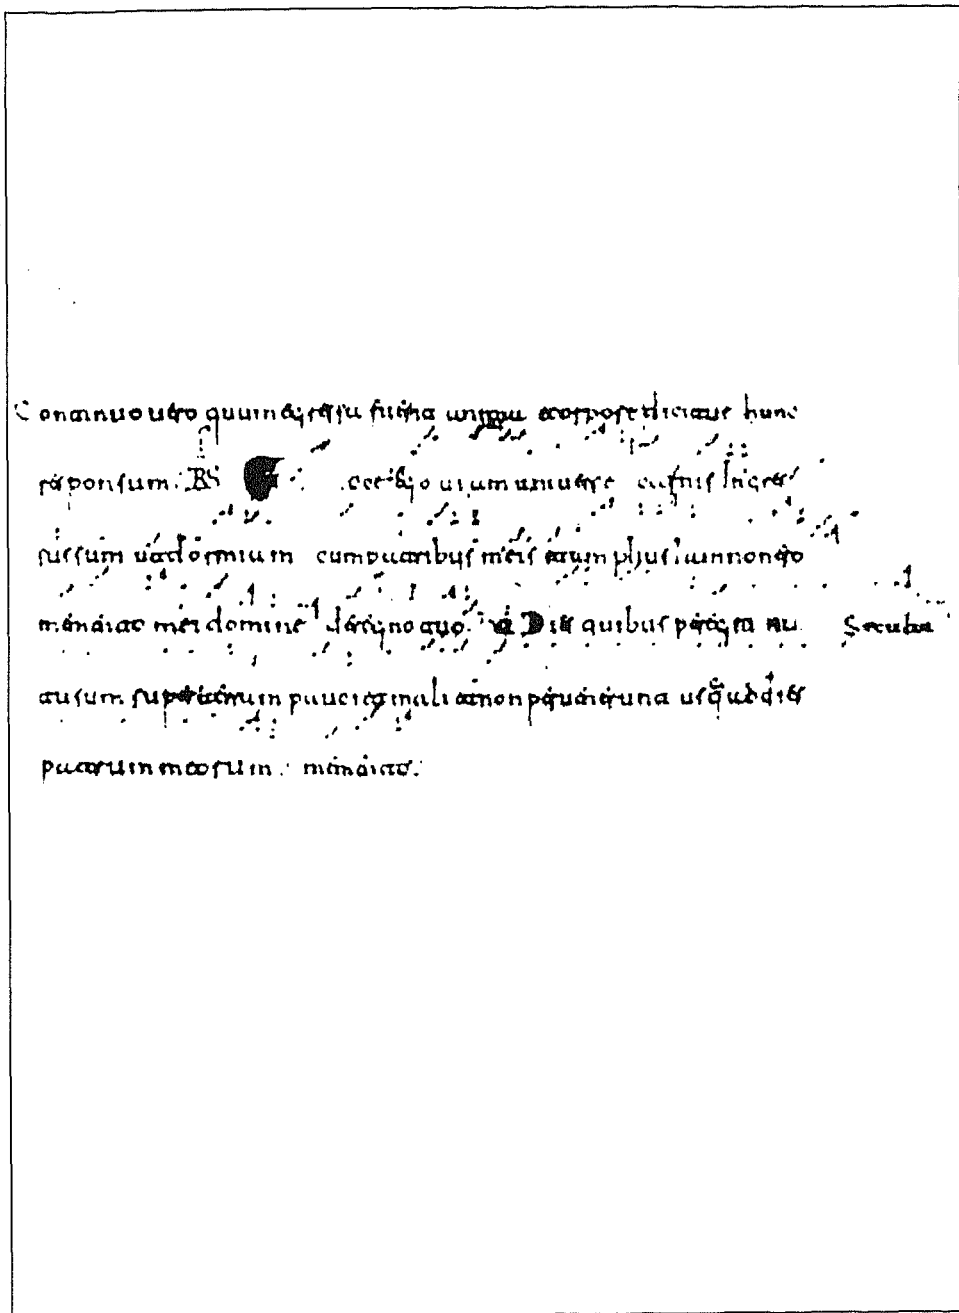 Continuo uero quum egressa fuerit anima corpore dicitur hunc
responsum. RS ecce ego uiam uniuerse carnis Ingres
sus sum ut dormiam cum patribus meis et amplius iam non ero
memento mei domine de regno tuo. Dies quibus peregrina
tus sum super terram pauci et mali et non peruenerunt usque ad dies
patrum meorum. memento.